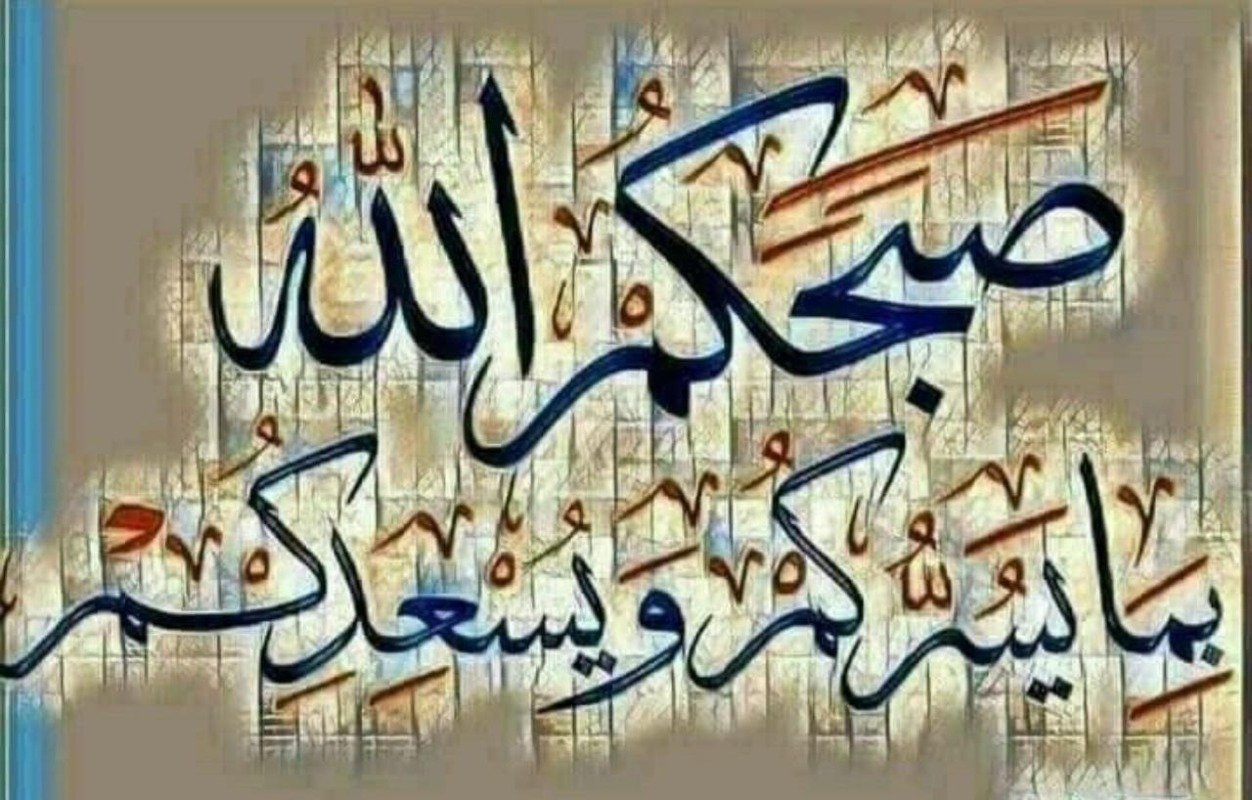 صَبَّحَكُمُ اللّٰهُ
بِمَا يَسُرُّكُمْ وَيُسْعِدِكُمْ